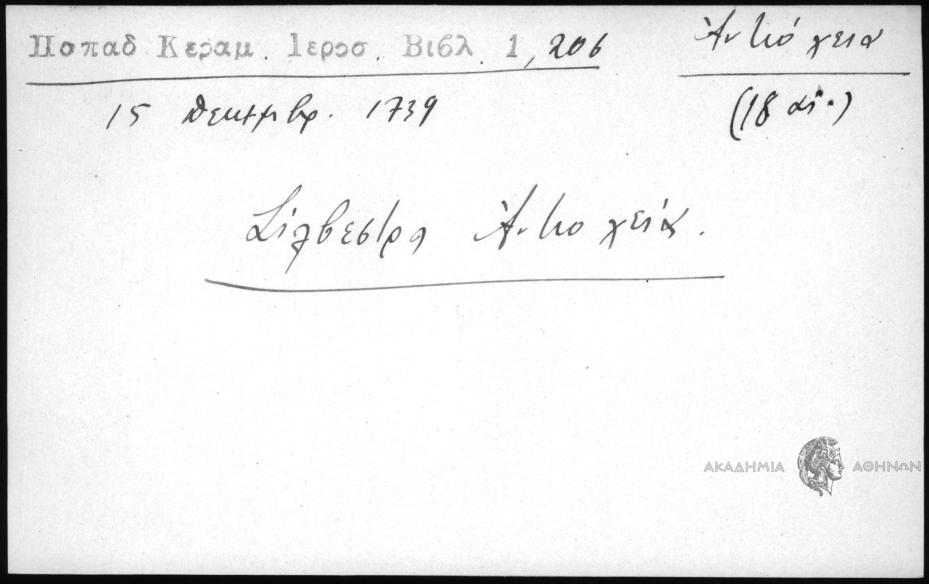 Παπαδ Κεραμ. Ιεροσ. Βιβλ. 1, 206
Ἀντιόχεια
15 Δεκεμβρ. 1739
(18 αἰ.)
Σίλβεστρο Ἀντιοχείας.
ΑΚΑΔΗΜΙΑ ΑΘΗΝΩΝ